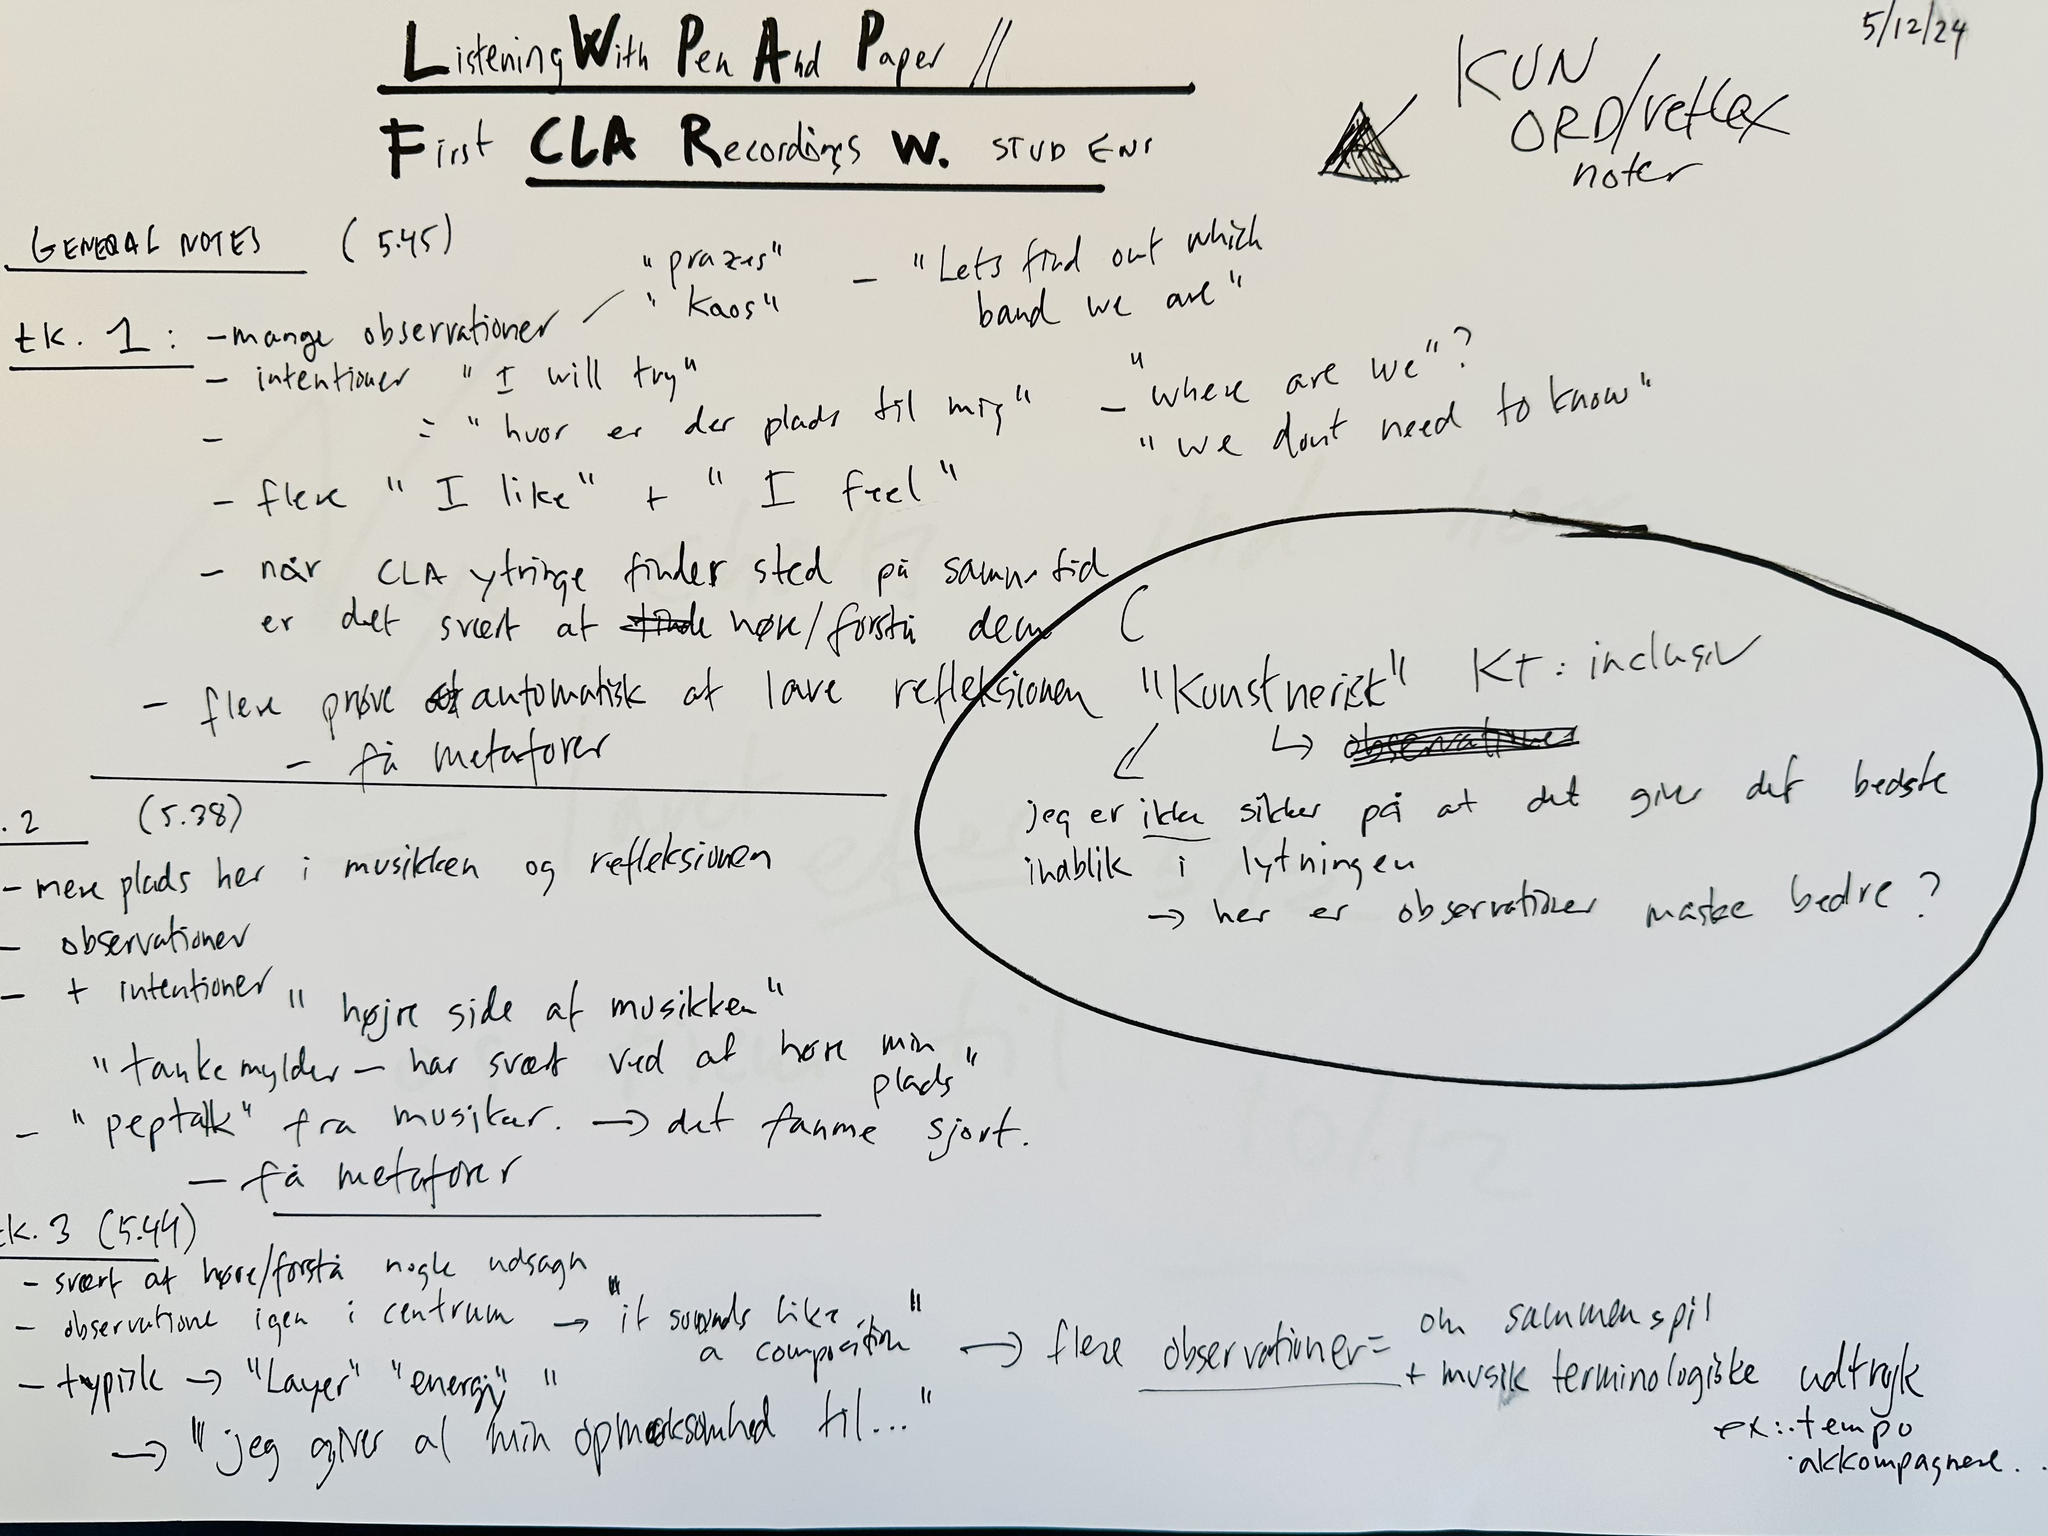 5/12/24
Listening With Pen And Paper //
First CLA Recordings W. STUDENT
KUN
ORD/reflex
noter
GENERAL NOTES (5.45)
tk. 1 : - mange observationer
"kaos"
- "Lets find out which
band we are"
- intentioner "I will try"
- = "hvor er der plads til mig"
- "where are we"?
"we dont need to know"
- flere "I like" + "I feel"
- når CLA ytringe finder sted på samme tid
er det svært at finde høre/forstå dem
- flere prøve at automatisk at lave refleksionen "Kunstnerisk" KT: inclusiv
↳ observationer
- få metaforer
jeg er ikke sikker på at det giver det bedste
indblik i lytningen
→ her er observationer måske bedre?
. 2 (5.38)
- mere plads her i musikken og refleksionen
- observationer
- + intentioner "højre side af musikken"
"tankemylder - har svært ved at høre min
plads"
- "peptalk" fra musiker. → det fanme sjovt.
- få metaforer
tk. 3 (5.44)
- svært at høre/forstå nogle udsagn
- observatione igen i centrum → "it sounds like
a composition" → flere observationer = om sammenspil
+ musik terminologiske udtryk
ex: .tempo
.akkompagnere..
- typisk → "Layer" "energy" "
→ "jeg giver al min opmærksomhed til..."